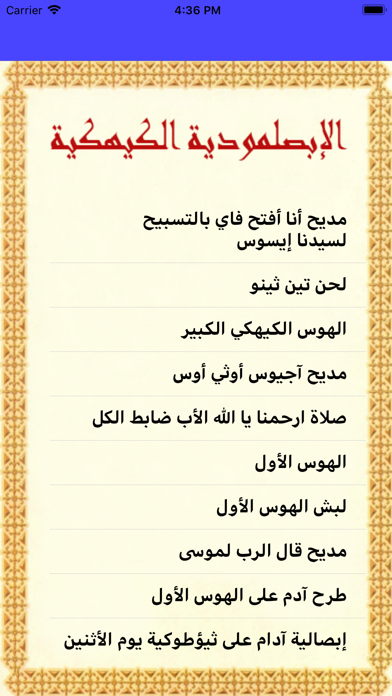 Carrier 4:36 PM
الإبصلمودية الكيهكية
مديح أنا أفتح فاي بالتسبيح
لسيدنا إيسوس
لحن تين ثينو
الهوس الكيهكي الكبير
مديح آجيوس أوثي أوس
صلاة ارحمنا يا الله الأب ضابط الكل
الهوس الأول
لبش الهوس الأول
مديح قال الرب لموسى
طرح آدم على الهوس الأول
إبصالية آدام على ثيؤطوكية يوم الأثنين